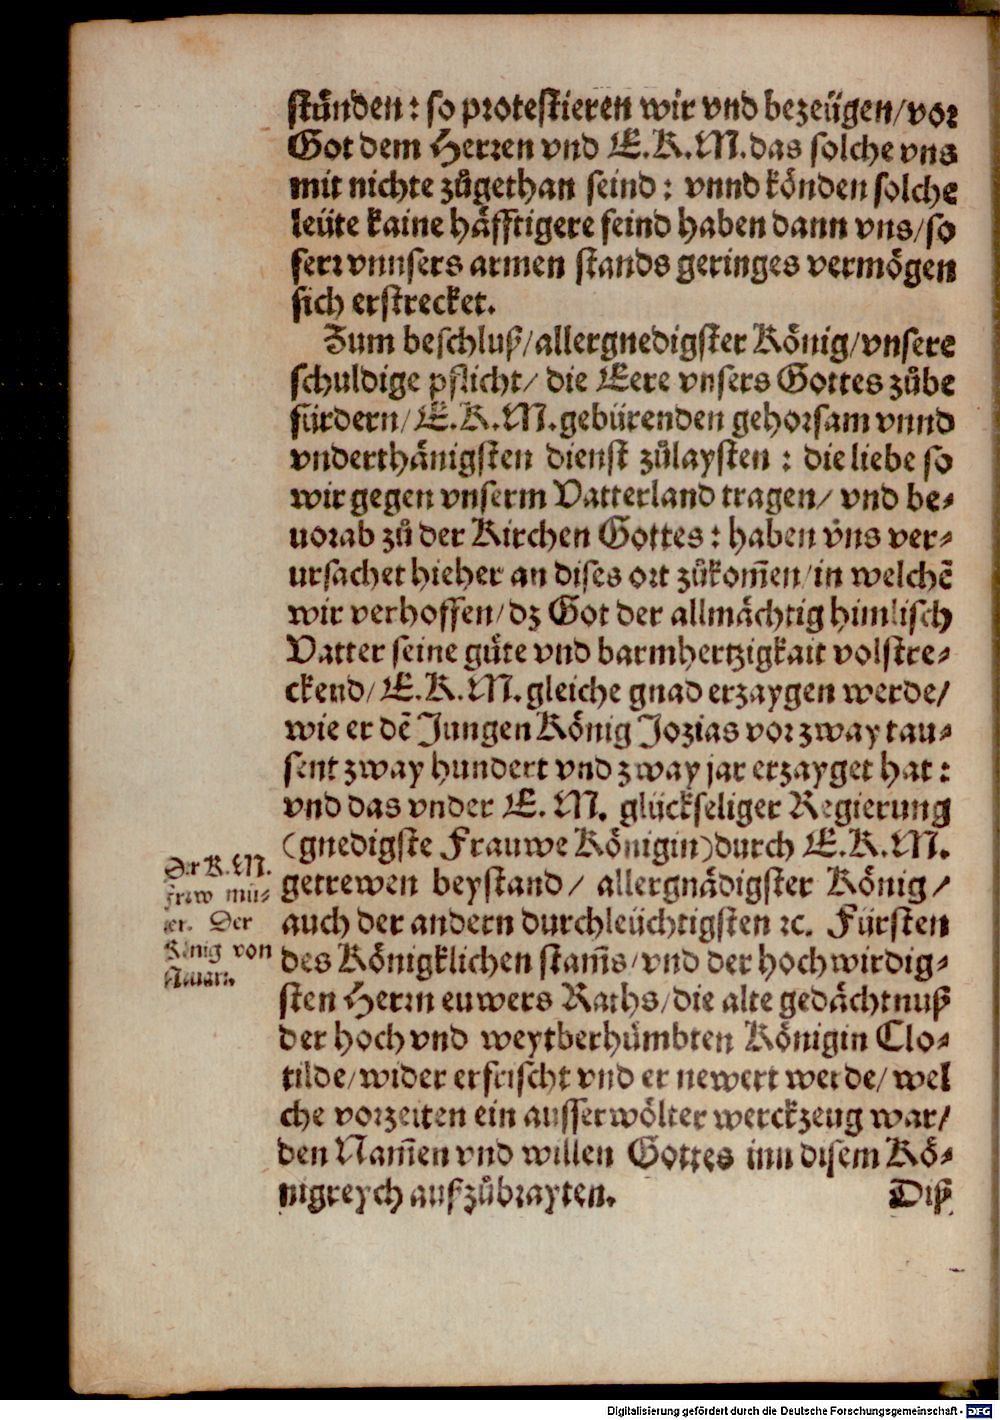 stůnden : so protestieren wir vnd bezeügen/vor
Got dem Herren vnd E.K.M.das solche vns
mit nichte zůgethan seind : vnnd könden solche
leüte kaine häfftigere feind haben dann vns/so
ferr vnnsers armen stands geringes vermögen
sich erstrecket.
Zum beschluß/allergnedigster König/vnsere
schuldige pflicht/ die Eere vnsers Gottes zůbe
fürdern/ E.K.M.gebürenden gehorsam vnnd
vnderthänigsten dienst zůlaysten : die liebe so
wir gegen vnserm Vatterland tragen/ vnd be-
uorab zů der Kirchen Gottes : haben vns ver-
ursachet hieher an dises ort zůkom̃en/in welchẽ
wir verhoffen/dz Got der allmächtig himlisch
Vatter seine güte vnd barmhertzigkait volstre-
ckend/ E.K.M.gleiche gnad erzaygen werde/
wie er dẽ Jungen König Jozias vor zway tau-
sent zway hundert vnd zway jar erzayget hat :
vnd das vnder E. M. glückseliger Regierung
(gnedigste Frauwe Königin)durch E.K.M.
getrewen beystand/ allergnädigster König/
auch der andern durchleüchtigsten ꝛc. Fürsten
des Königklichen stam̃s/vnd der hochwirdig-
sten Herrn euwers Raths/die alte gedächtnuß
der hoch vnd weytberhümbten Königin Clo-
tilde/wider erfrischt vnd er newert werde/ wel
che vorzeiten ein ausserwölter werckzeug war/
den Nam̃en vnd willen Gottes inn disem Kö-
nigreych aufzůbrayten.
Diß
Der K.M.
fraw mů-
ter. Der
König von
Nauarr.
Digitalisierung gefördert durch die Deutsche Forschungsgemeinschaft - DFG